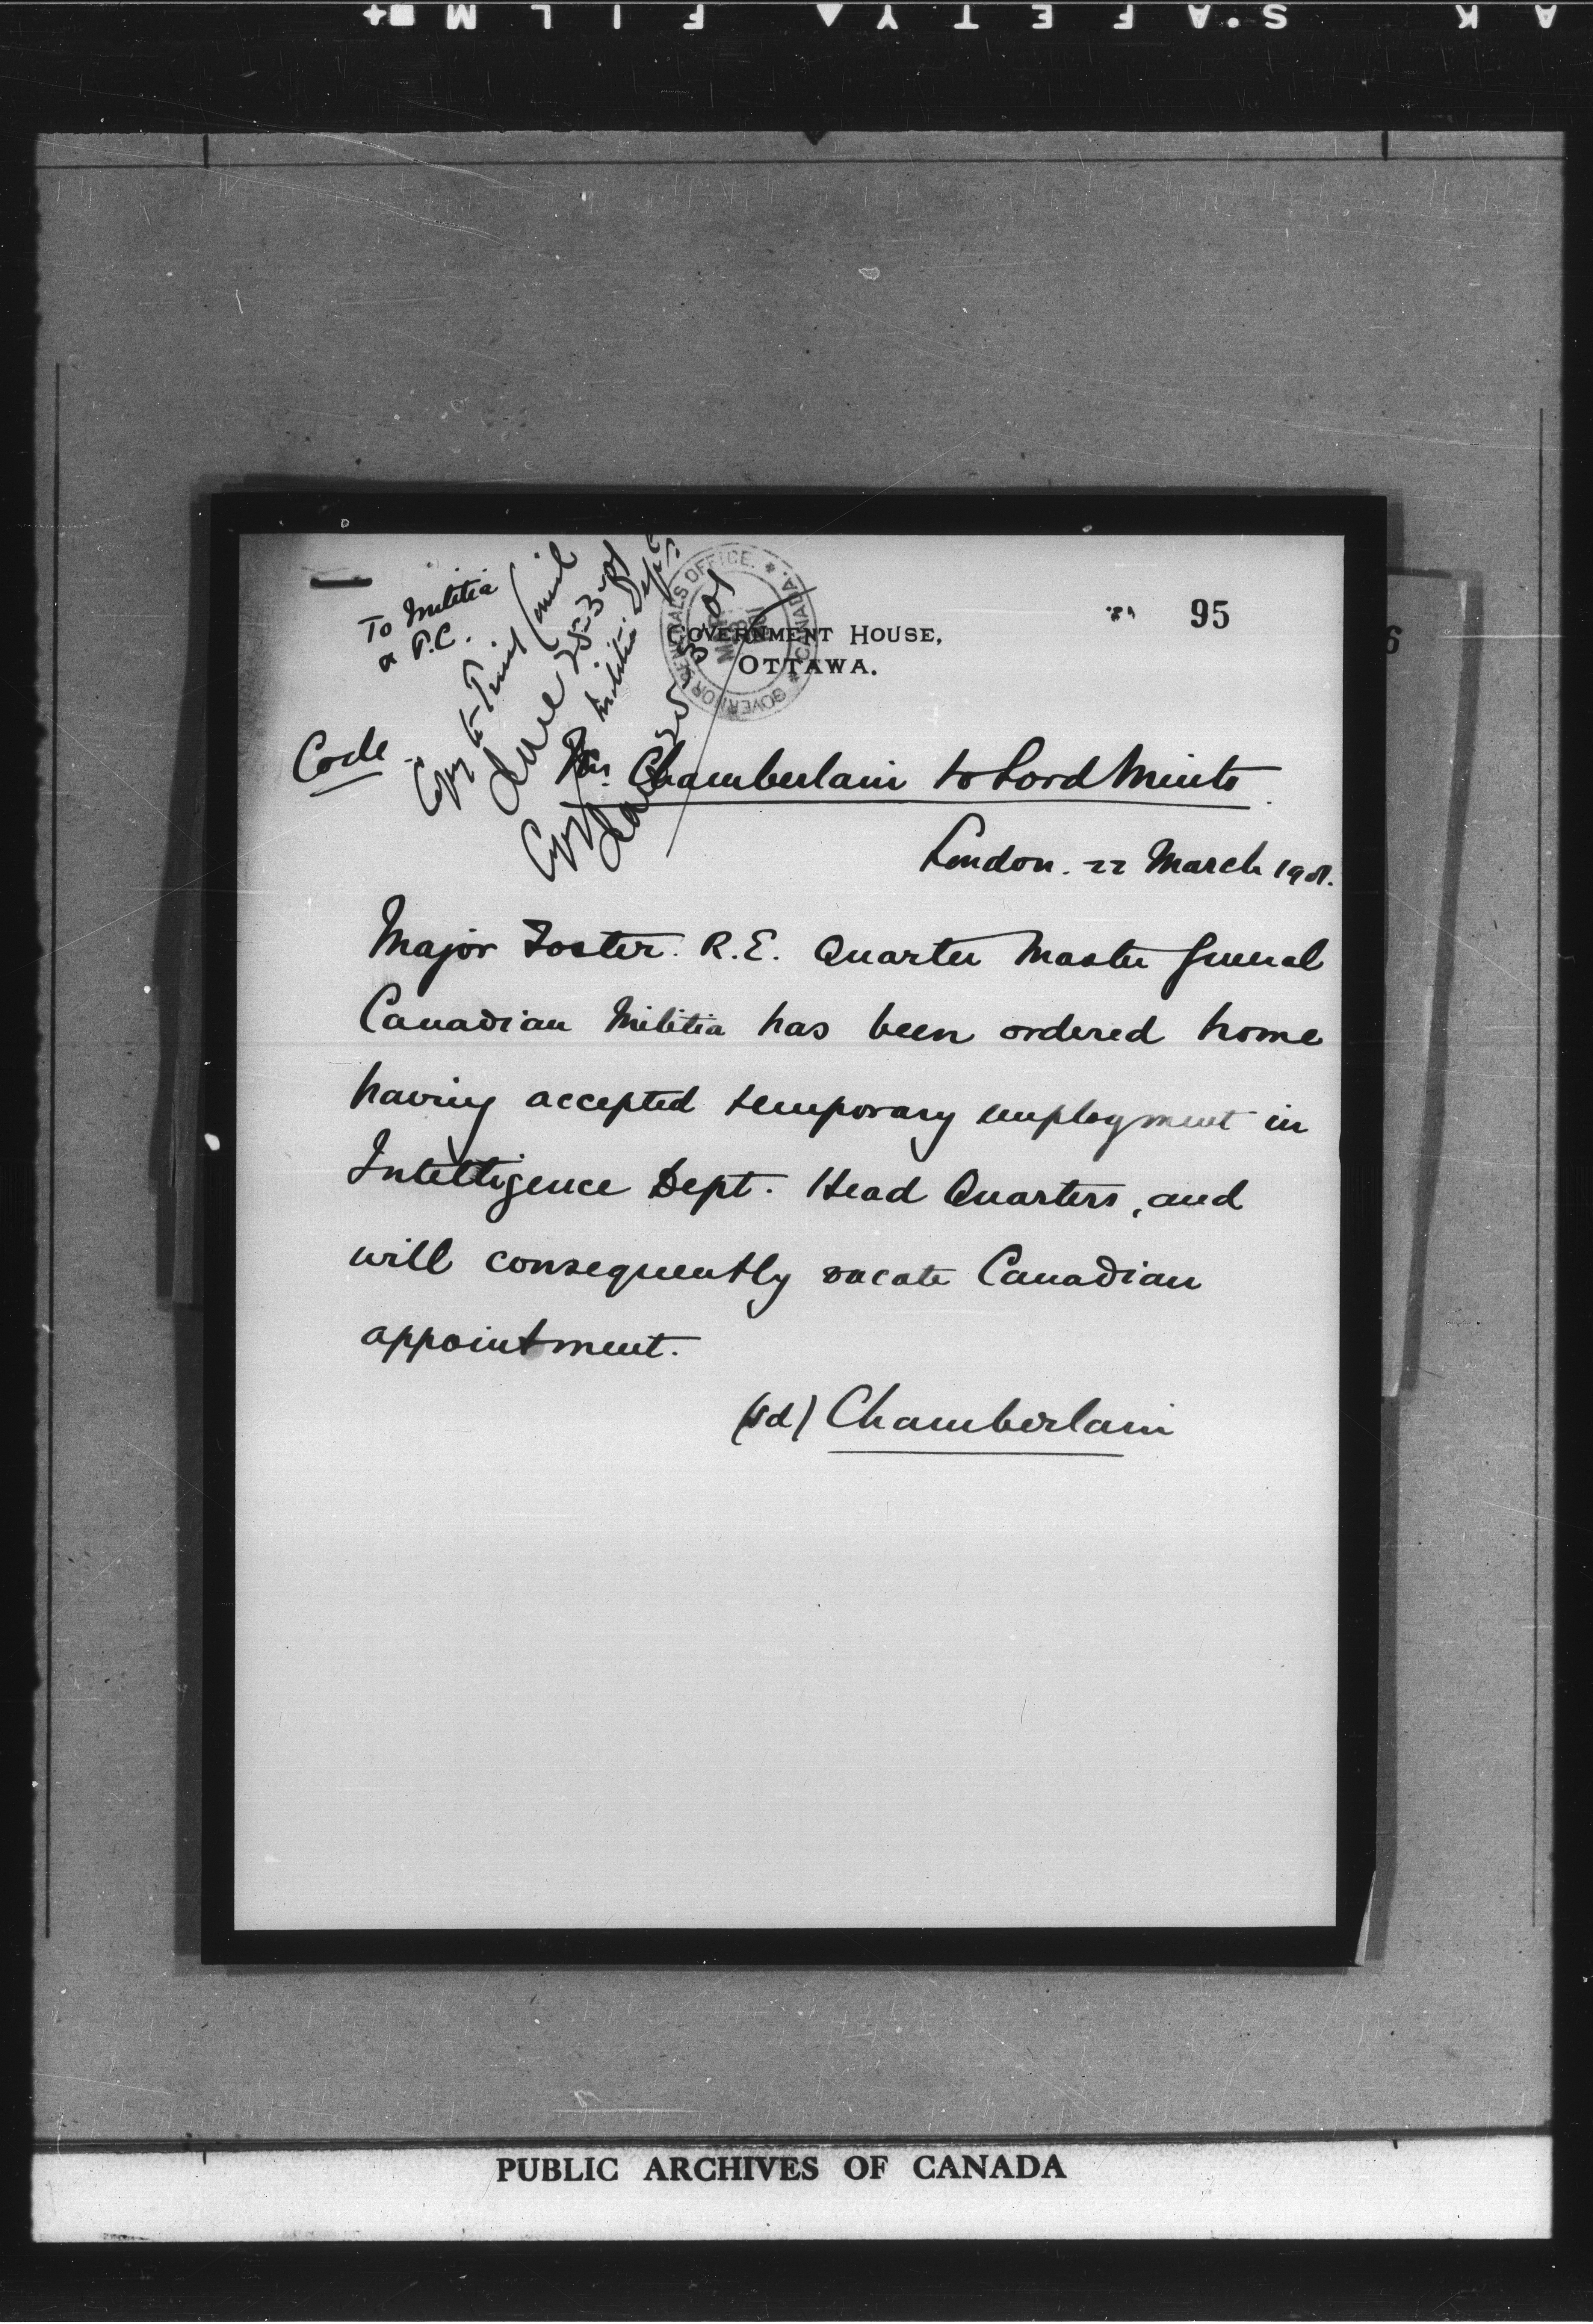 SAFETY FILM
95
6
To Militia
& P.C.
GOVERNOR GENERALS OFFICE. CANADA.
GOVERNMENT HOUSE,
OTTAWA.
Code
Copy to Privy Council
25-3-01
Copy to Militia Dept
Chamberlain to Lord Minto.
London. 22 March 1901.
Major Foster. R.E. Quarter Master General
Canadian Militia has been ordered home
having accepted temporary employment in
Intelligence Dept. Head Quarters, and
will consequently vacate Canadian
appointment.
(sd) Chamberlain
PUBLIC ARCHIVES OF CANADA